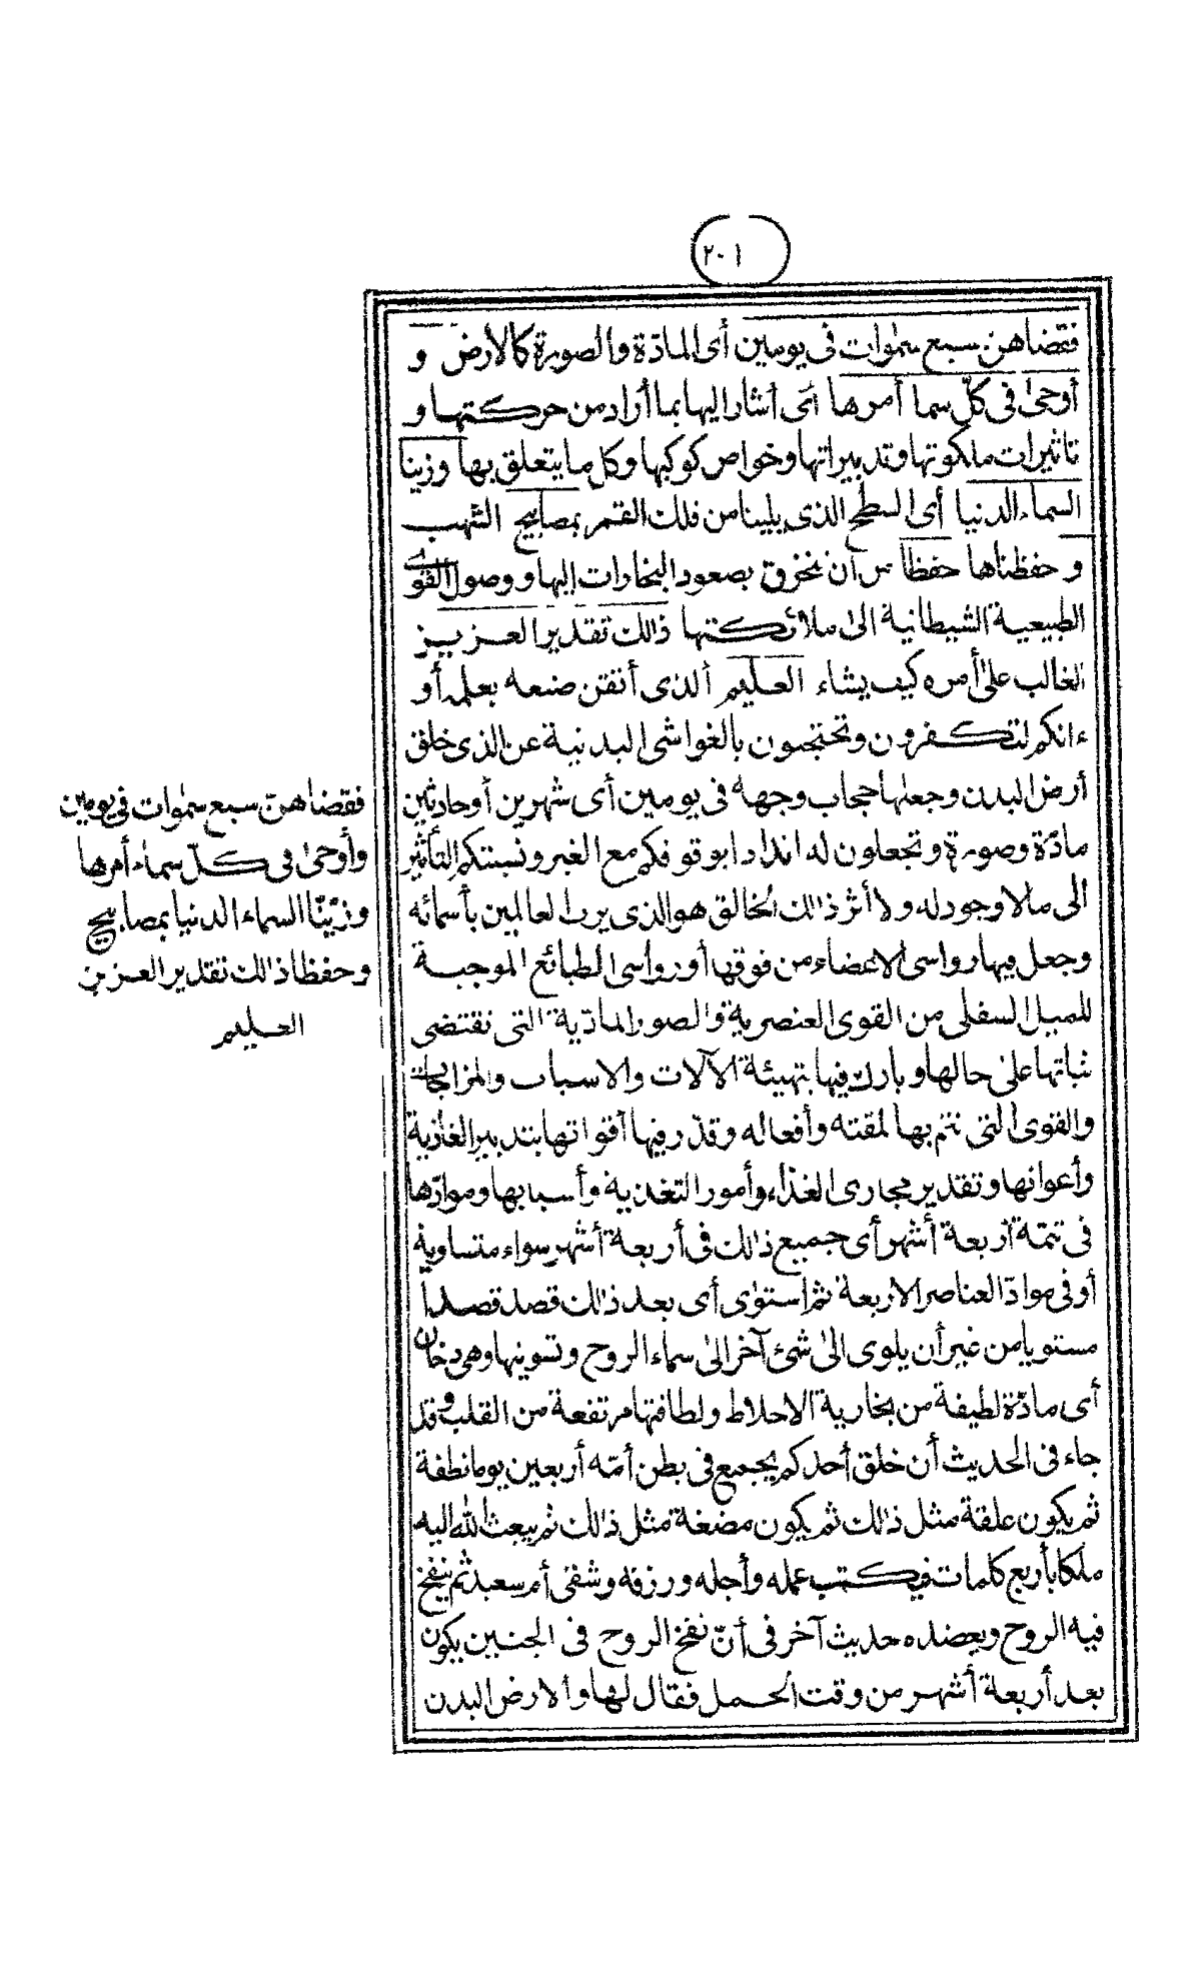 ٢٠١
فقضاهن سبع سموات فى يومين أى المادّة والصورة كالارض و
أوحى فى كلّ سما أمرها أى أشار اليها بما أراد من حركتها و
تاثيرات ملكوتها وتدبيراتها وخواص كوكبها وكل ما يتعلق بها وزينا
السماء الدنيا أى السطح الذى يلينا من فلك القمر بمصابيح الشهب
و حفظناها حفظا من أن نخرق بصعود البخارات إليها ووصول القوى
الطبيعية الشيطانية الى ملائكتها ذالك تقدير العزيز
الغالب على أمره كيف يشاء العليم الذى أتقن صنعه بعلمه أو
ءانكم لتكفرون وتحتجبون بالغواشى البدنية عن الذى خلق
أرض البدن وجعلها حجاب وجهه فى يومين أى شهرين أو حادثين
مادّة وصورة وتجعلون له اندادا بوقوفكم مع الغير ونسبتكم التأثير
الى مالا وجود له ولا أثر ذالك الخالق هو الذى يرب العالمين بأسمائه
وجعل فيها رواسى الاعضاء من فوقها أو رواسى الطبائع الموجبة
للميل السفلى من القوى العنصرية والصور المادّية التى تقتضى
ثباتها على حالها وبارك فيها بتهيئة الآلات والاسباب والمزاجات
والقوى التى تتم بها لمقته وأفعاله وقدّر فيها أقواتها بتدبير الغاذية
وأعوانها وتقدير مجارى الغذاء وأمور التغذية وأسبابها وموادّها
فى تتمّة أربعة أشهر أى جميع ذالك فى أربعة أشهر سواء متساوية
أو فى موادّ العناصر الاربعة ثم استوى أى بعد ذلك قصد قصدا
مستويا من غير أن يلوى الى شئ آخر الى سماء الروح وتسويتها وهى دخان
أى مادّة لطيفة من بخارية الاخلاط ولطافتها مرتفعة من القلب وقد
جاء فى الحديث أن خلق أحدكم يجمع فى بطن أمّه أربعين يوما نطفة
ثم يكون علقة مثل ذالك ثم يكون مضغة مثل ذالك ثم يبعث الله اليه
ملكا بأربع كلمات فيكتب عمله وأجله ورزقه وشقى أم سعيد ثم ينفخ
فيه الروح ويعضده حديث آخر فى أنّ نفخ الروح فى الجنين يكون
بعد أربعة أشهر من وقت الحمل فقال لها والارض البدن
فقضاهنّ سبع سموات فى يومين
وأوحى فى كلّ سماء أمرها
وزيّنّا السماء الدنيا بمصابيح
وحفظا ذالك تقدير العزيز
العليم